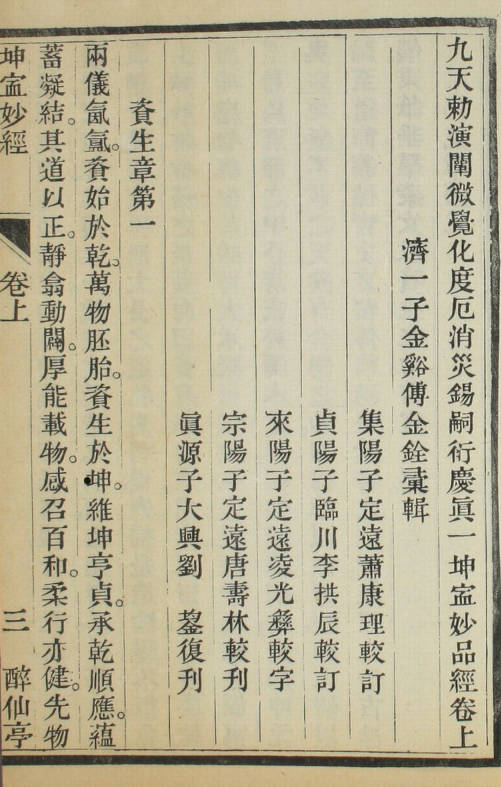 九天勅演闡微覺化度厄消災錫嗣衍慶眞一坤寍妙品經卷上
濟一子金谿傅金銓彙輯
集陽子定遠蕭康理較訂
貞陽子臨川李拱辰較訂
來陽子定遠凌光彝較字
宗陽子定遠唐壽林較刊
眞源子大興劉 鋆復刊
資生章第一
兩儀氤氳。資始於乾。萬物胚胎。資生於坤。維坤亨貞。承乾順應。蘊
蓄凝結。其道以正。靜翕動闢。厚能載物。感召百和。柔行亦健。先物
坤寍妙經 卷上 三 醉仙亭